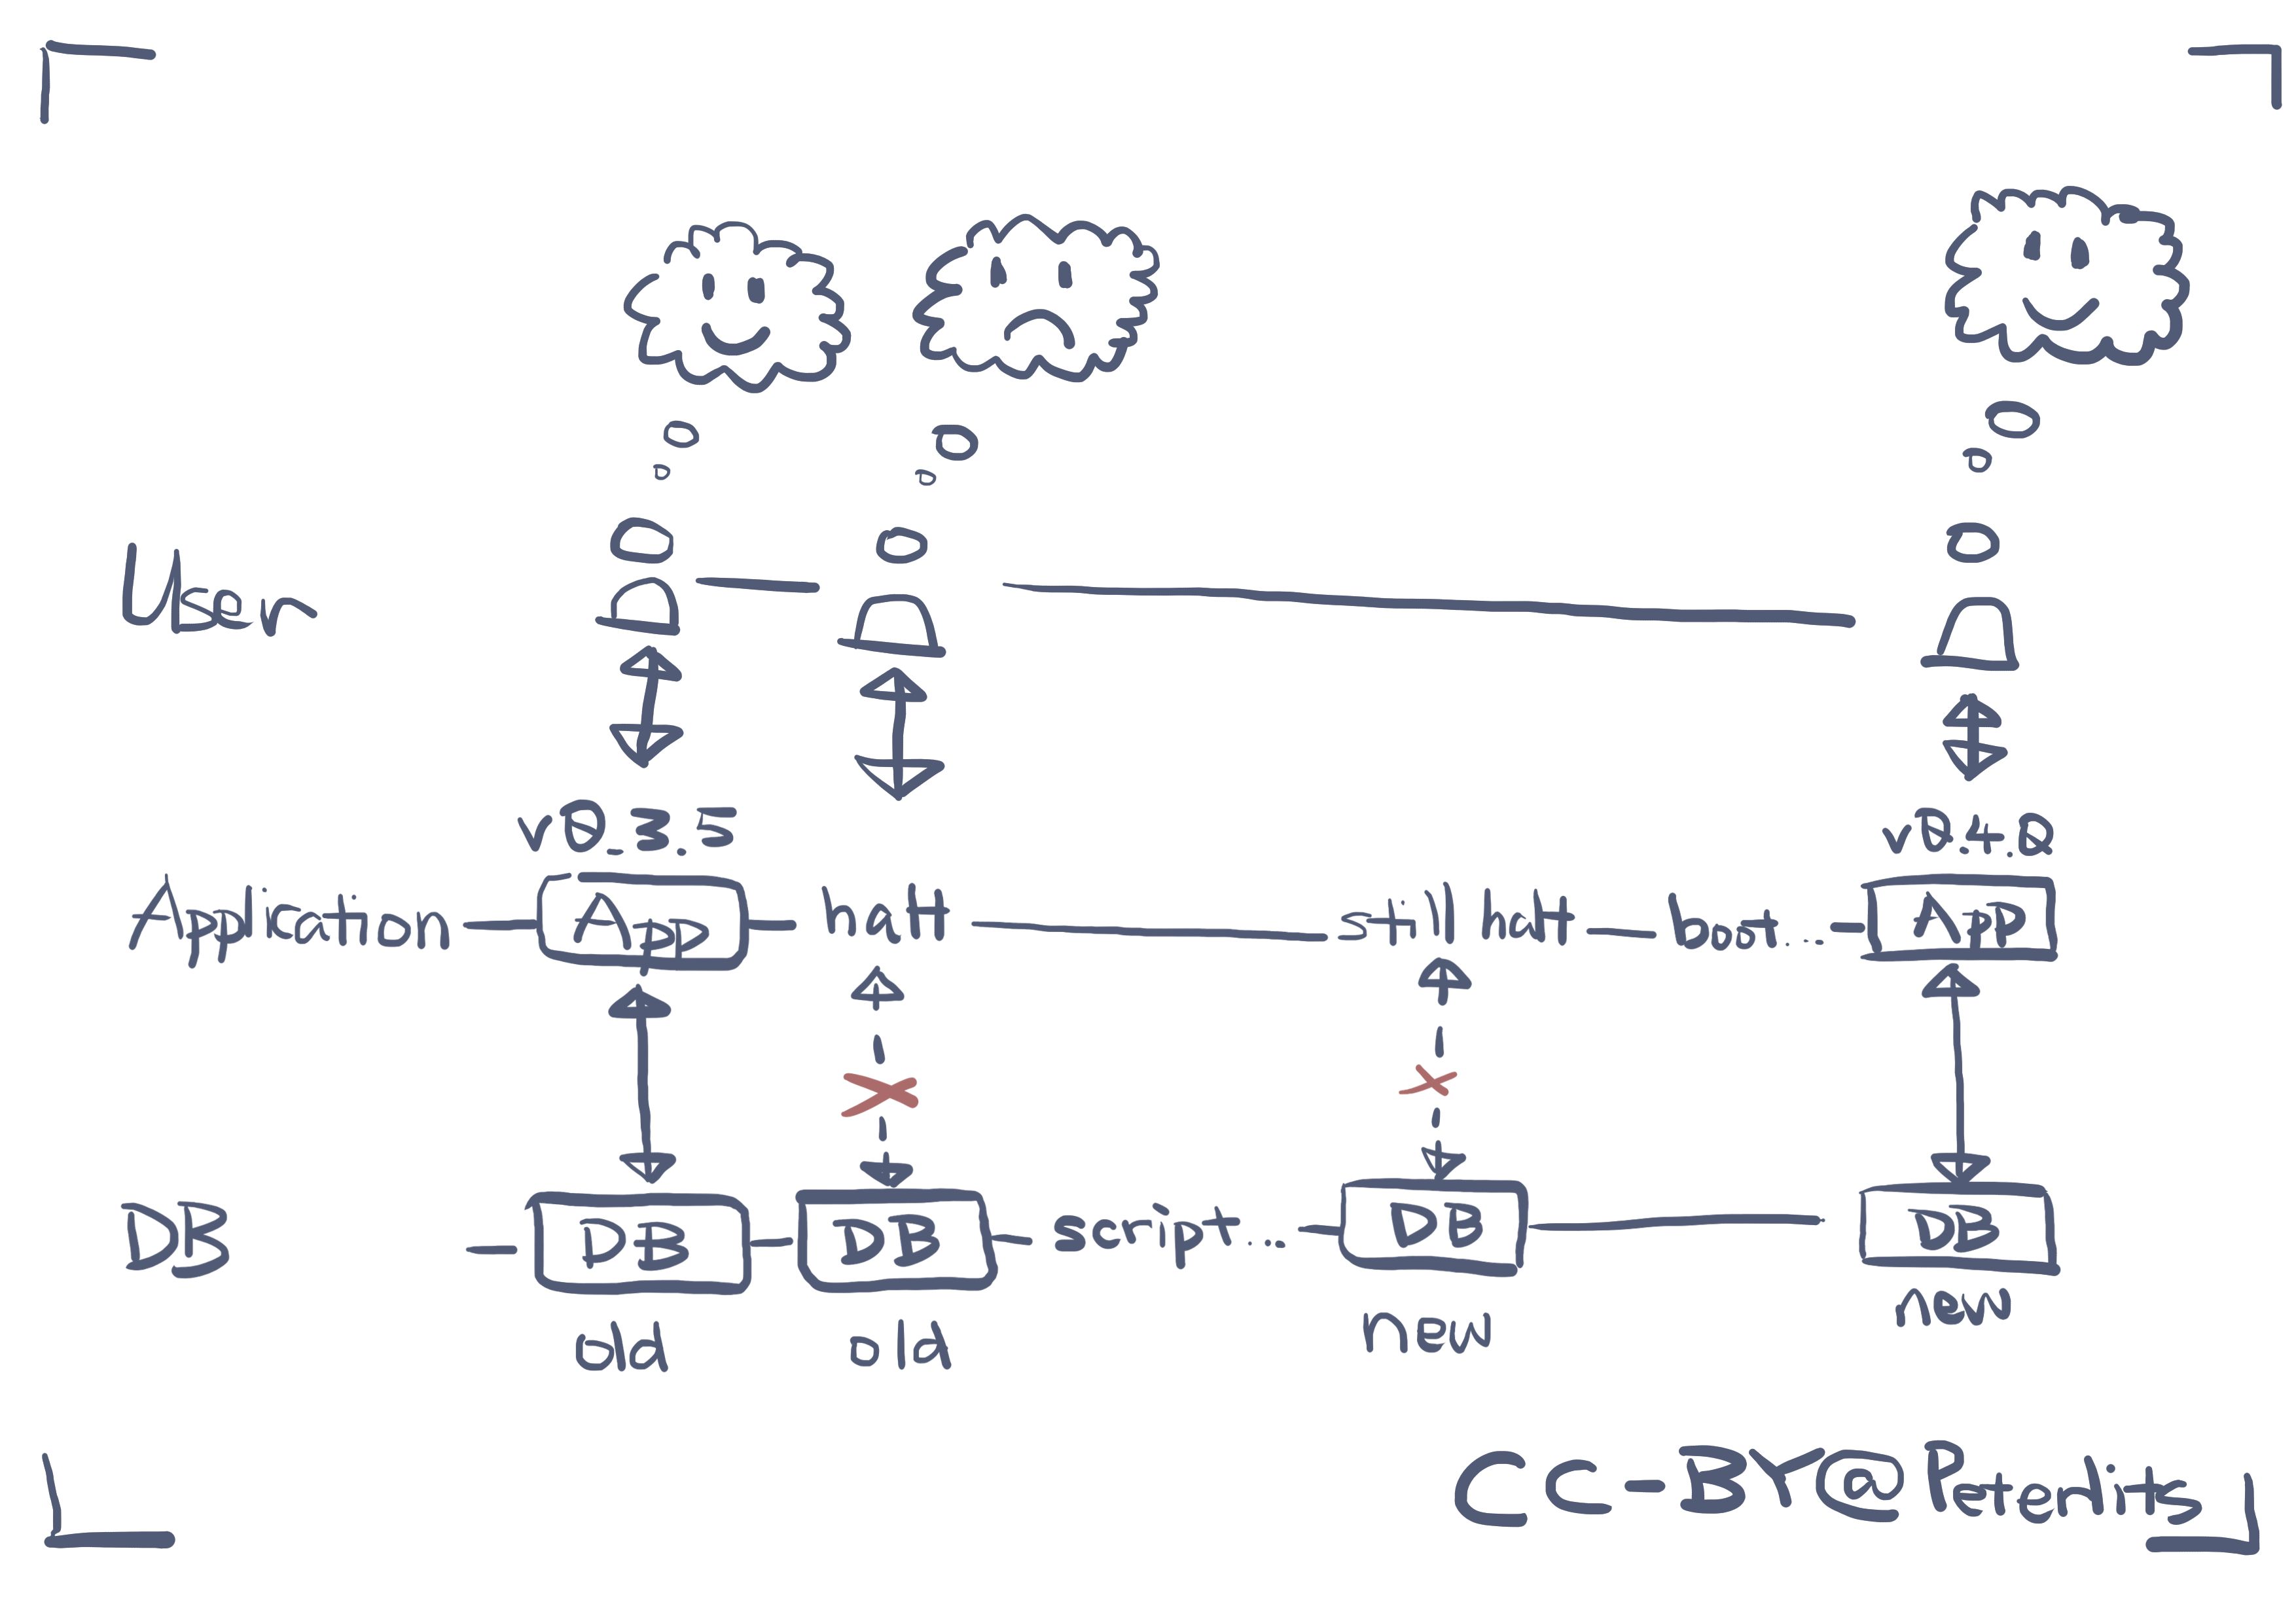 User
v0.3.5
v0.4.0
Application App halt still halt boot... App
DB DB DB script... DB DB
old old new new
CC-BY@Peterlits